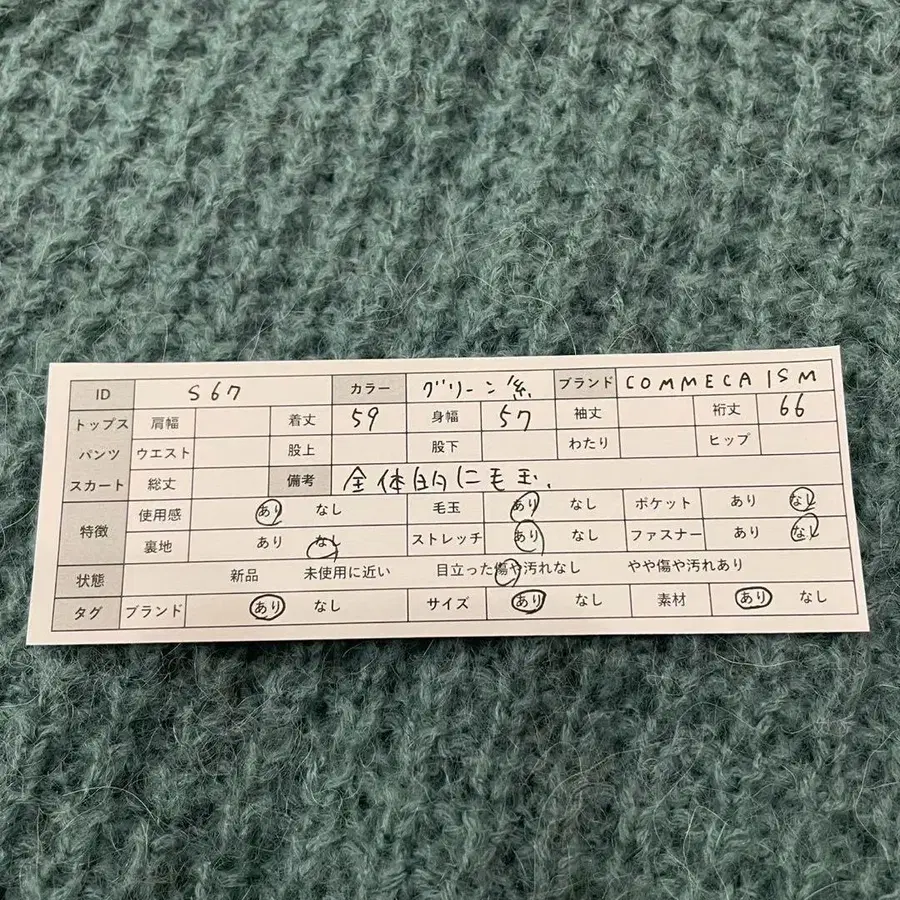 ID S67 カラー グリーン系 ブランド COMMECA ISM
トップス 肩幅 着丈 59 身幅 57 袖丈 裄丈 66
パンツ ウエスト 股上 股下 わたり ヒップ
スカート 総丈 備考 全体的に毛玉、
特徴 使用感 あり なし 毛玉 あり なし ポケット あり なし
裏地 あり なし ストレッチ あり なし ファスナー あり なし
状態 新品 未使用に近い 目立った傷や汚れなし やや傷や汚れあり
タグ ブランド あり なし サイズ あり なし 素材 あり なし